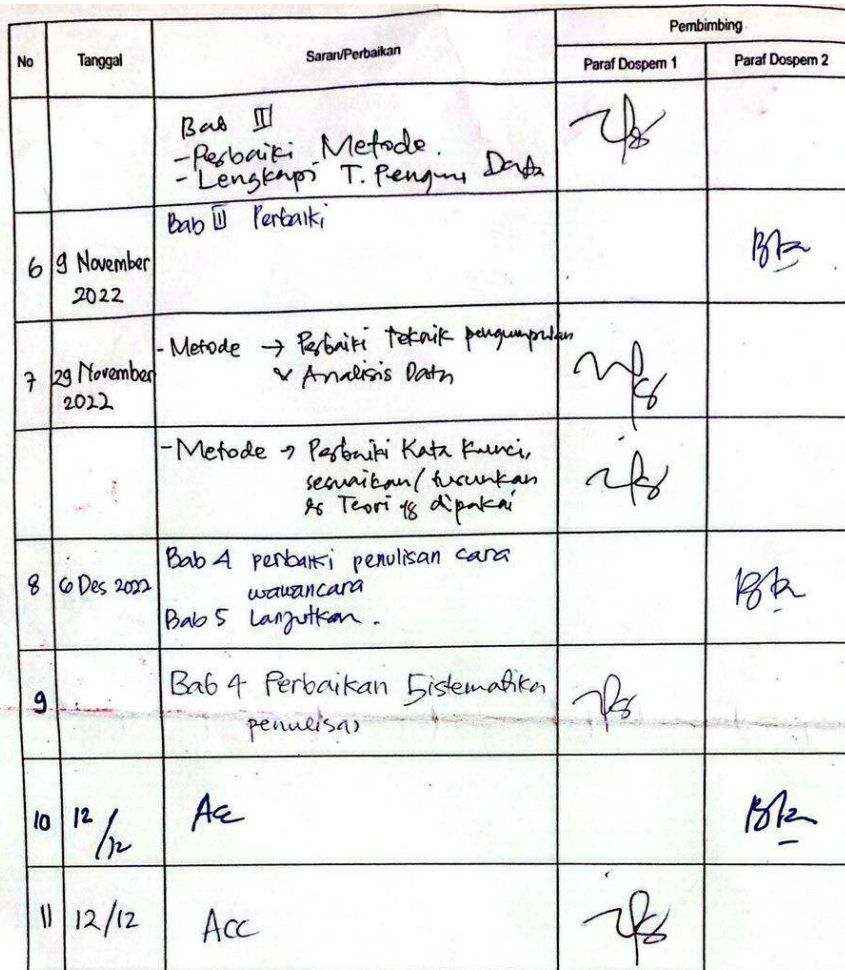 No Tanggal Saran/Perbaikan Pembimbing
Paraf Dospem 1 Paraf Dospem 2
Bab III
- Perbaiki Metode.
- Lengkapi T. Pengum Data
6 9 November 2022 Bab III Perbaiki
7 29 November 2022 - Metode → Perbaiki Teknik pengumpulan
& Analisis Data
- Metode → Perbaiki Kata Kunci,
sesuaikan/turunkan
dg Teori yg dipakai
8 6 Des 2022 Bab 4 perbaiki penulisan cara
wawancara
Bab 5 Lanjutkan.
9 Bab 4 Perbaikan Sistematika
penulisan
10 12/12 Acc
11 12/12 Acc